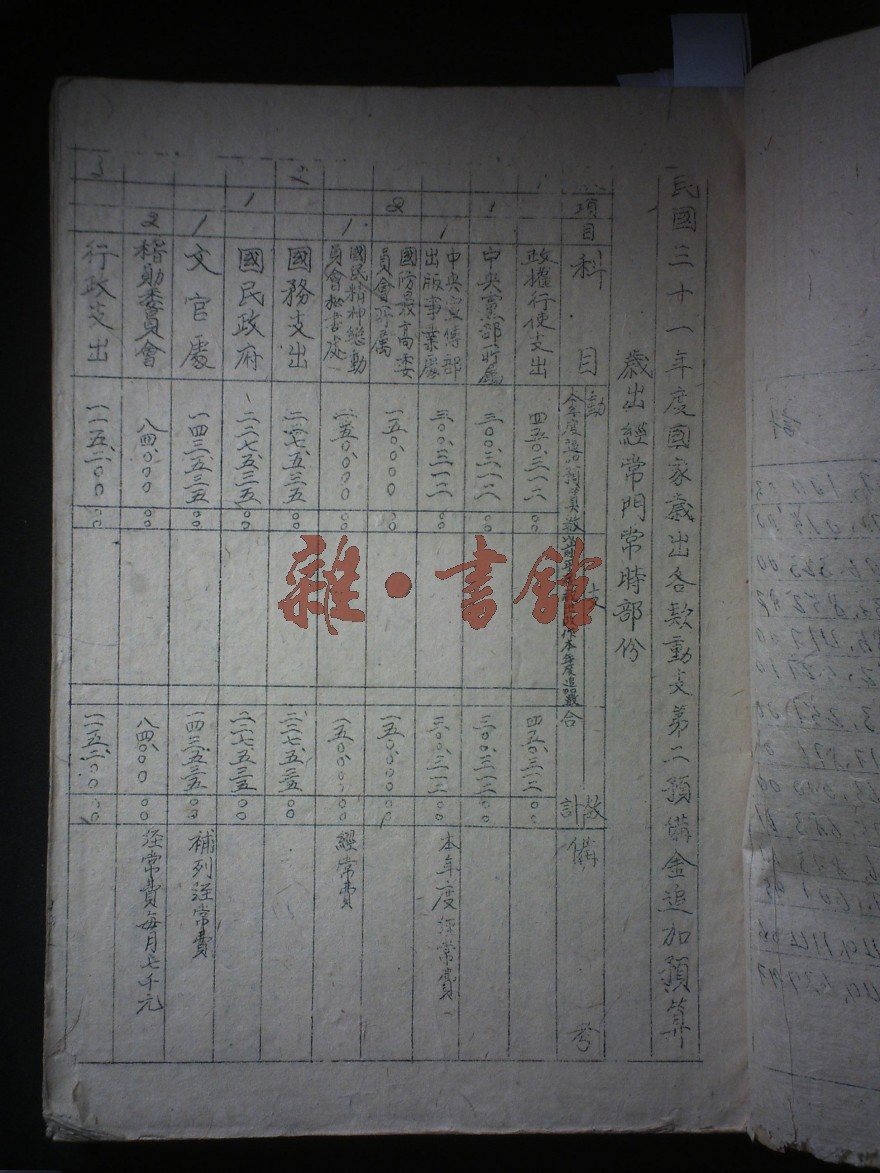 民國三十一年度國家歲出各款動支第二預備金追加預算
歲出經常門常時部份
款項目 科目 動支數 備考
今年度追加預算數 合計
1 政權行使支出 四五〇、三一二 〇〇 四五〇、三一二 〇〇
1 中央黨部所屬 三〇〇、三一二 〇〇 三〇〇、三一二 〇〇
1 中央宣傳部出版事業處 三〇〇、三一二 〇〇 三〇〇、三一二 〇〇 本年度經常費
2 國防最高委員會所屬 一五〇、〇〇〇 〇〇 一五〇、〇〇〇 〇〇
1 國民精神總動員會秘書處 一五〇、〇〇〇 〇〇 一五〇、〇〇〇 〇〇 經常費
2 國務支出 二二七、五三五 〇〇 二二七、五三五 〇〇
1 國民政府 二二七、五三五 〇〇 二二七、五三五 〇〇
1 文官處 一四三、五三五 〇〇 一四三、五三五 〇〇 補列經常費
2 稽勛委員會 八四、〇〇〇 〇〇 八四、〇〇〇 〇〇 經常費每月七千元
3 行政支出 〇〇 〇〇
雜·書館